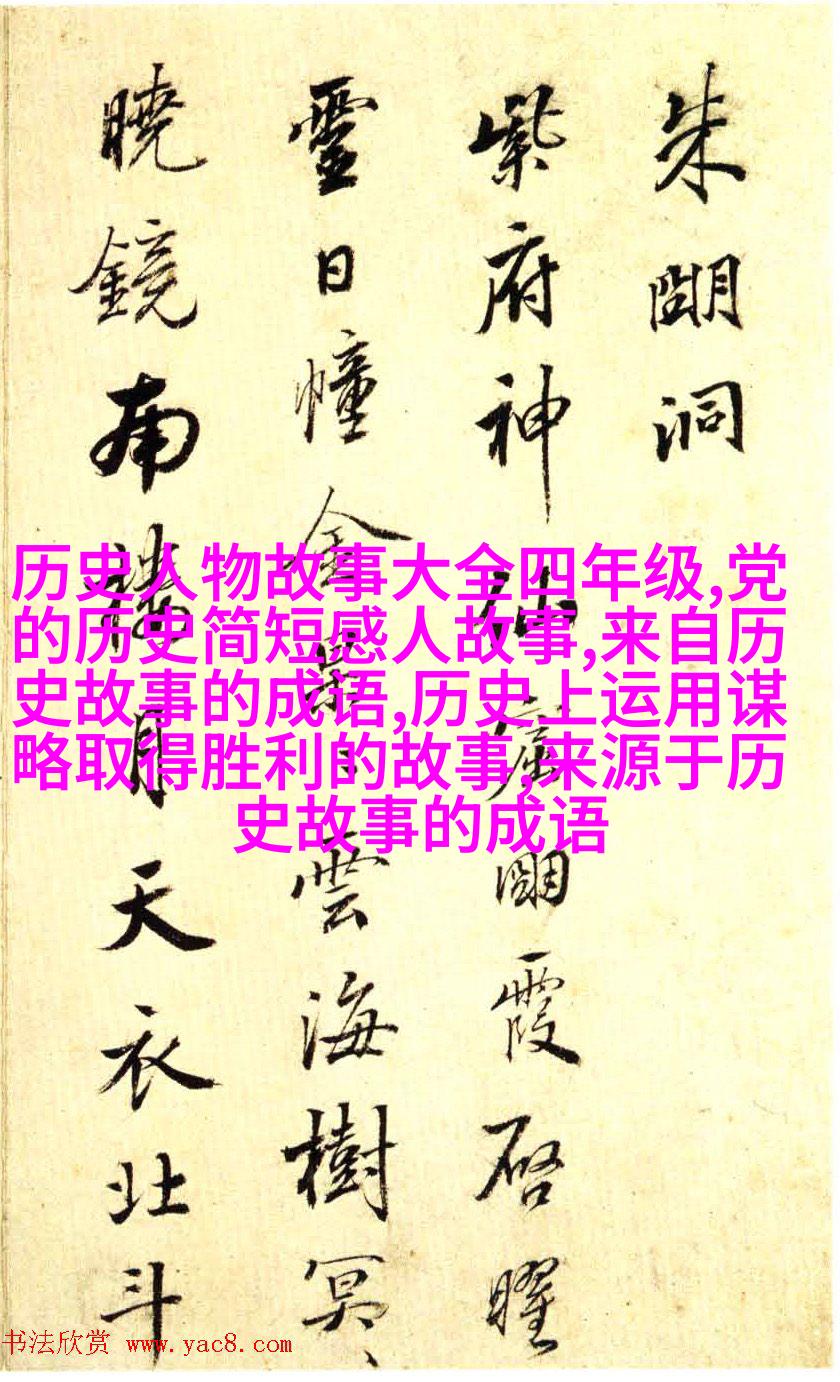 朱朙洞
紫府神仙朙霞启曜
霊日幢金雲海樹冥、
曉鏡南樓月天衣北斗
历史人物故事大全四年级,党
的历史简短感人故事,来自历
史故事的成语,历史上运用谋
略取得胜利的故事,来源于历
史故事的成语
书法欣赏 www.yac8.com